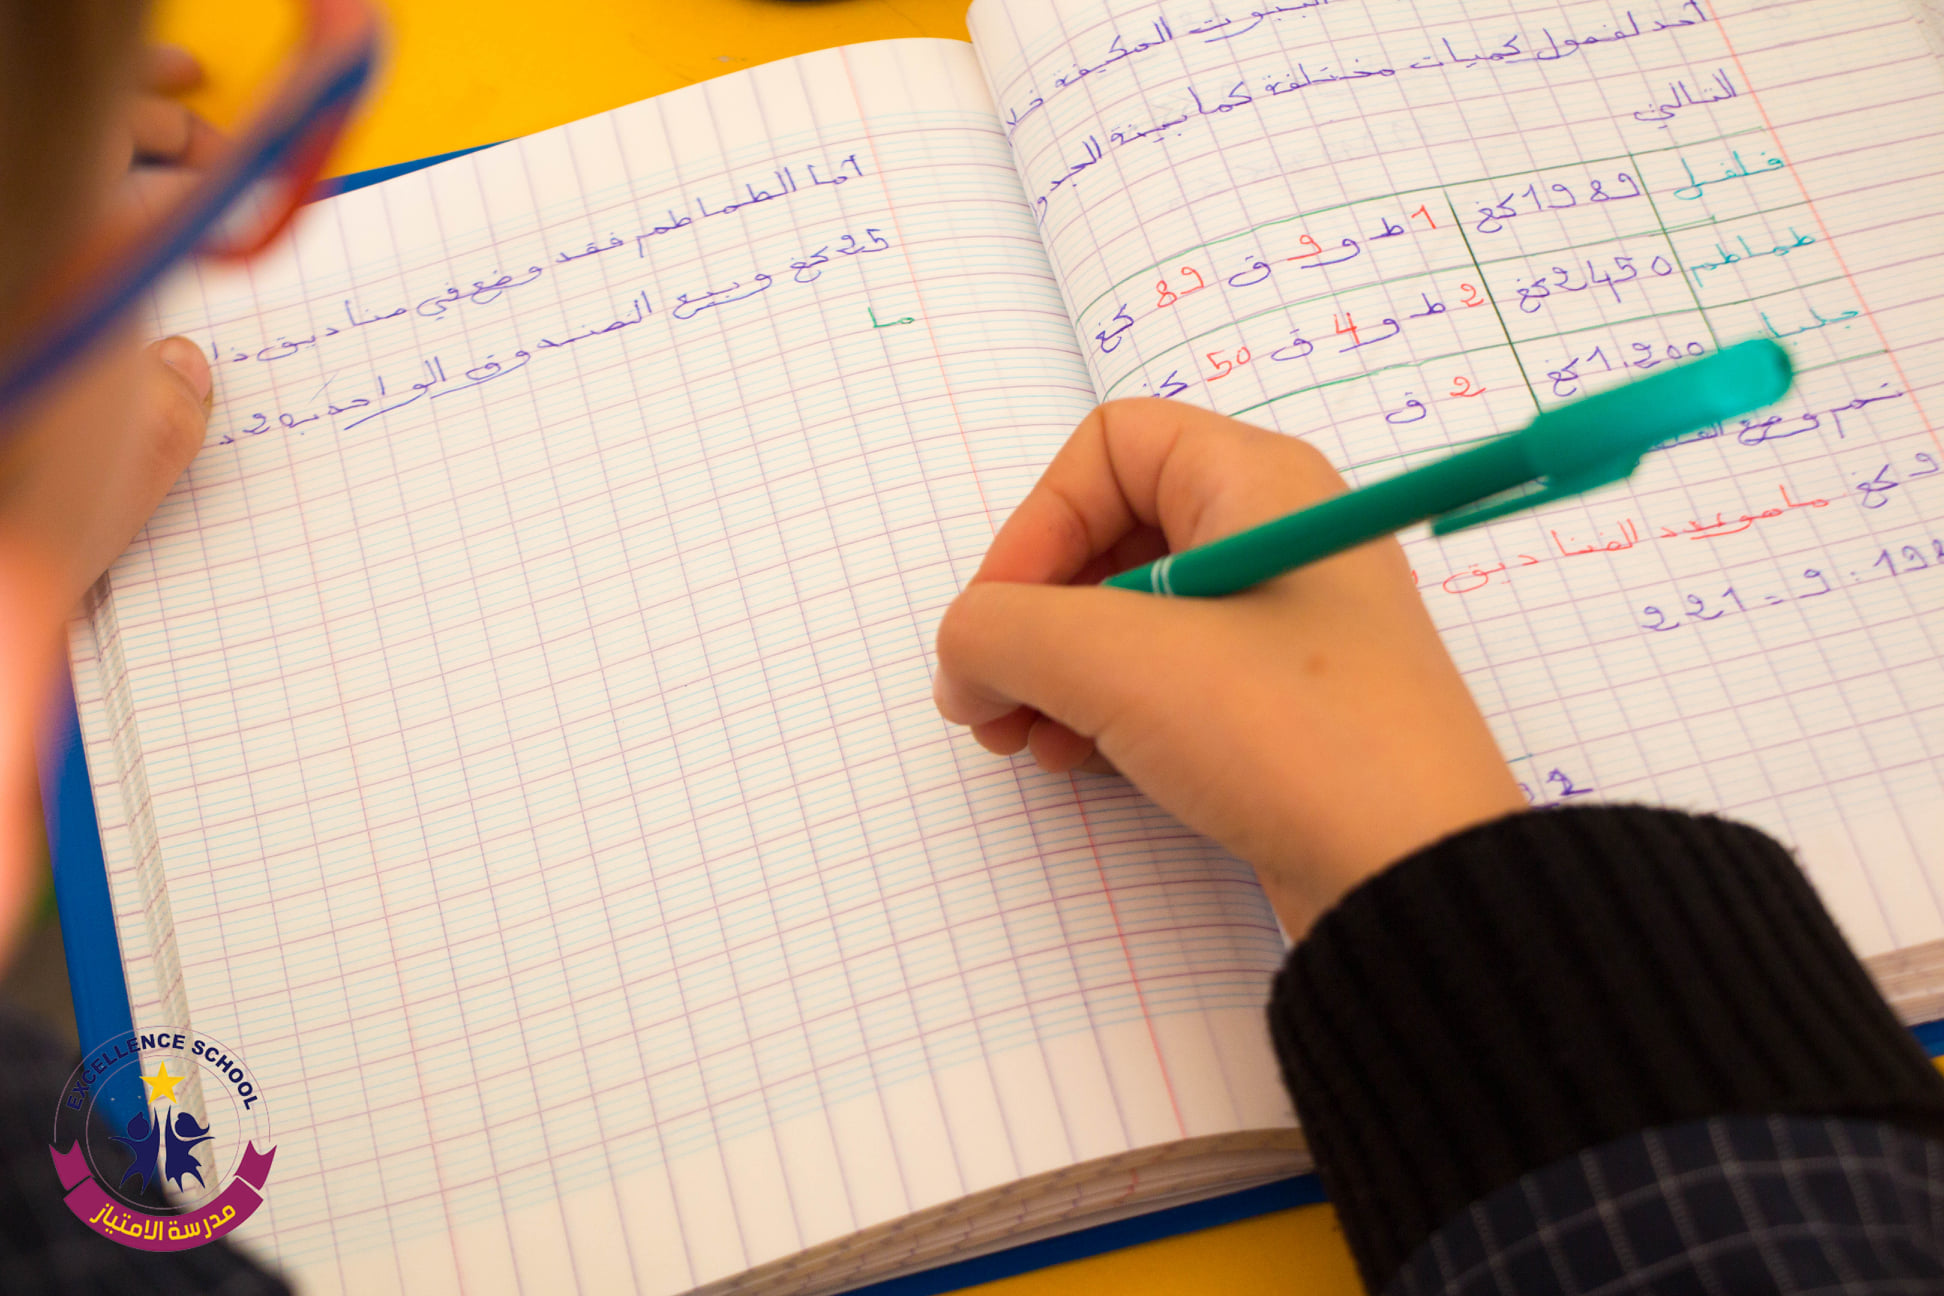 البيوت المكيفة
أحد لفصول كميات مختلفة كما يبينه الجدو
التالي
فلفل 1989 كغ 1 ط و 9 ق 89 كغ
طماطم 2450 كغ 2 ط و 4 ق 50 كغ
جلبان 1.200 كغ 2 ق
ثم وضع
9 كغ ما هو عدد الصناديق
198 : 9 = 221
92
أما الطماطم فقد وضع في صناديق ذا
25 كغ وبيع الصندوق الواحد بـ 2
ما
EXCELLENCE SCHOOL
مدرسة الامتياز